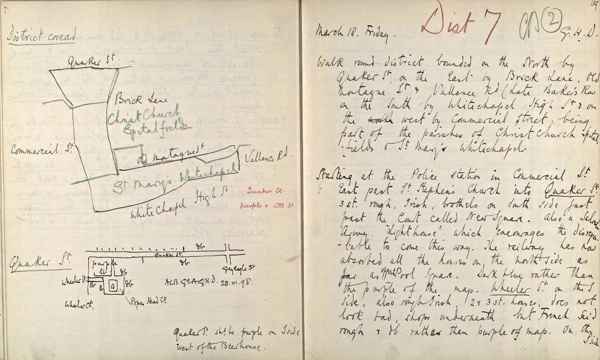 District covered
Quaker St.
Brick Lane
Christ Church
Spitalfields
Commercial St
Old Montague St
Vallance Rd.
St Mary's Whitechapel
White Chapel High St
Quaker St.
Purple & DB.
Quaker St
db
Quaker St
Grey Eagle St
purple
db
db
Wheeler St
Wheler St.
Pope's Head Ct
28.XI.98.
Quaker St. shd be purple on S side
West of the Beerhouse.
March 18. Friday.
Dist 7
2
G.H.D.
Walk round district bounded on the North by
Quaker St, on the East by Brick Lane, Old
Montague St & Vallance Rd (late Baker's Row
on the South by Whitechapel High St & on
the west by Commercial Street, being
part of the parishes of Christ Church Spital
-fields & St Mary's Whitechapel
Starting at the Police station in Commercial St
East past St Stephen's Church into Quaker St
3 st. rough, Irish, brothels on South side just
past the Court called New Square. Also a Salv.
Army 'Lighthouse' which encourages the disrepu
-table to come this way. The railway has now
absorbed all the houses on the North side as
far as opp Pool Square. Dark blue rather than
the purple of the map. Wheeler St on the S
side, also rough Irish, 2 & 3 st. houses, does not
look bad, shops underneath but French sd
rough & db. rather than purple of map. On the
S side